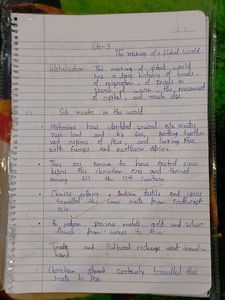 Ch-3
The making of a Global World
Globalisation: The making of global world
has a long history of trade,
of migration, of people in
search of work, the movement
of capital, and much else.
Silk routes in the world
Historians have identified several silk routes
over land and by sea, knitting together
vast regions of Asia, and linking Asia
with Europe and northern Africa.
They are known to have existed since
before the christian era and thrived
almost till the 15th century
Chinese pottery, textile and spices
travelled the same route from southeast
asia
In return precious metals, gold and silver
flowed from europe to Asia.
Trade and Cultural exchange went hand in
hand
Christian certainly travelled this
route to Asia.